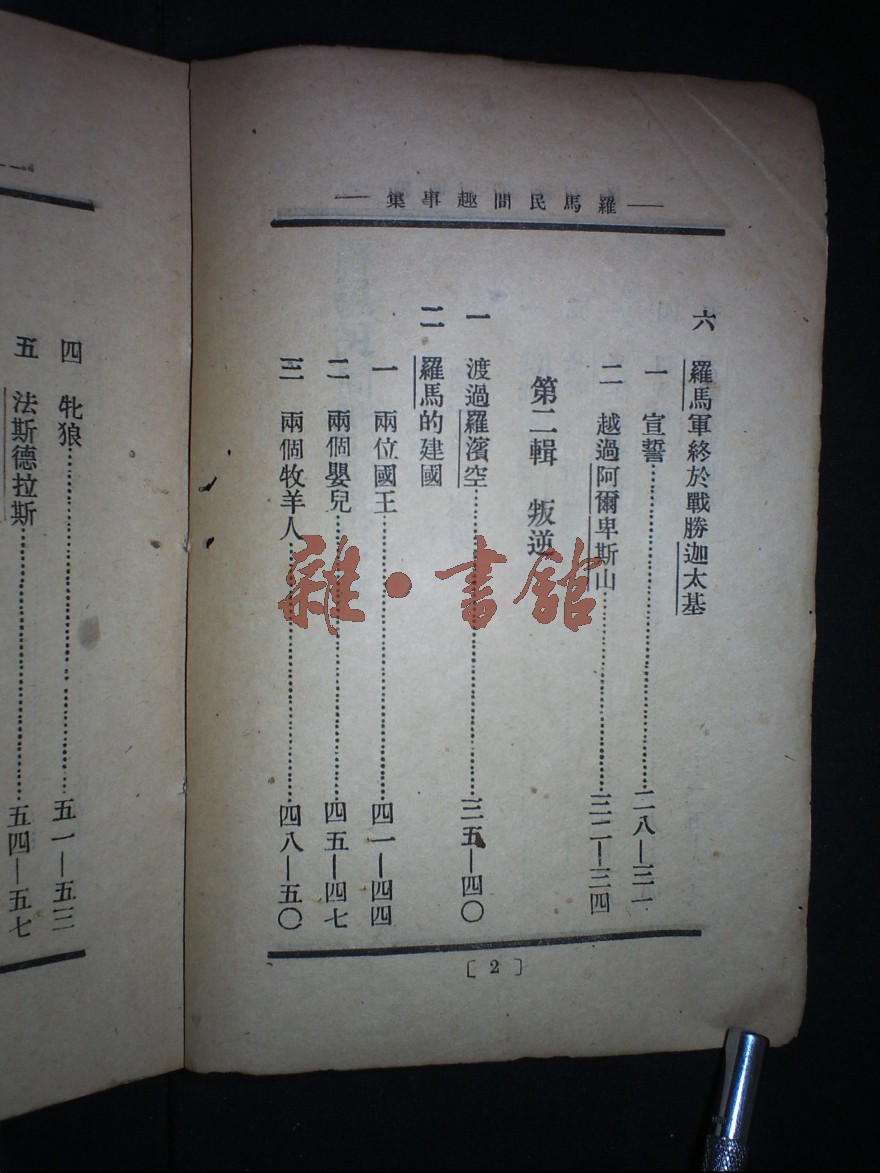 — 羅馬民間趣事集 —
六 羅馬軍終於戰勝迦太基
一 宣誓……二八—三一
二 越過阿爾卑斯山……三二—三四
第二輯 叛逆
一 渡過羅濱空……三五—四〇
二 羅馬的建國
一 兩位國王……四一—四四
二 兩個嬰兒……四五—四七
三 兩個牧羊人……四八—五〇
〔2〕
四 牝狼……五一—五三
五 法斯德拉斯……五四—五七
雜·書館